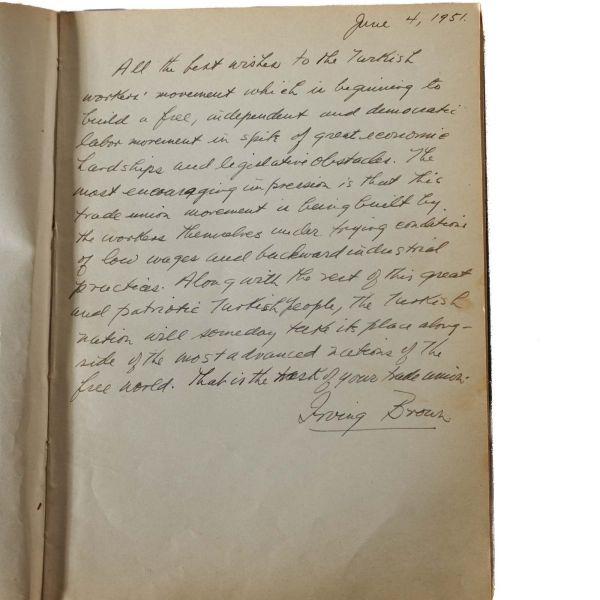 June 4, 1951.
All the best wishes to the Turkish
workers' movement which is beginning to
build a free, independent and democratic
labor movement in spite of great economic
hardships and legislative obstacles. The
most encouraging impression is that this
trade union movement is being built by
the workers themselves under trying conditions
of low wages and backward industrial
practices. Along with the rest of this great
and patriotic Turkish people, the Turkish
nation will someday take its place along-
side of the most advanced nations of the
free world. That is the task of your trade union.
Irving Brown